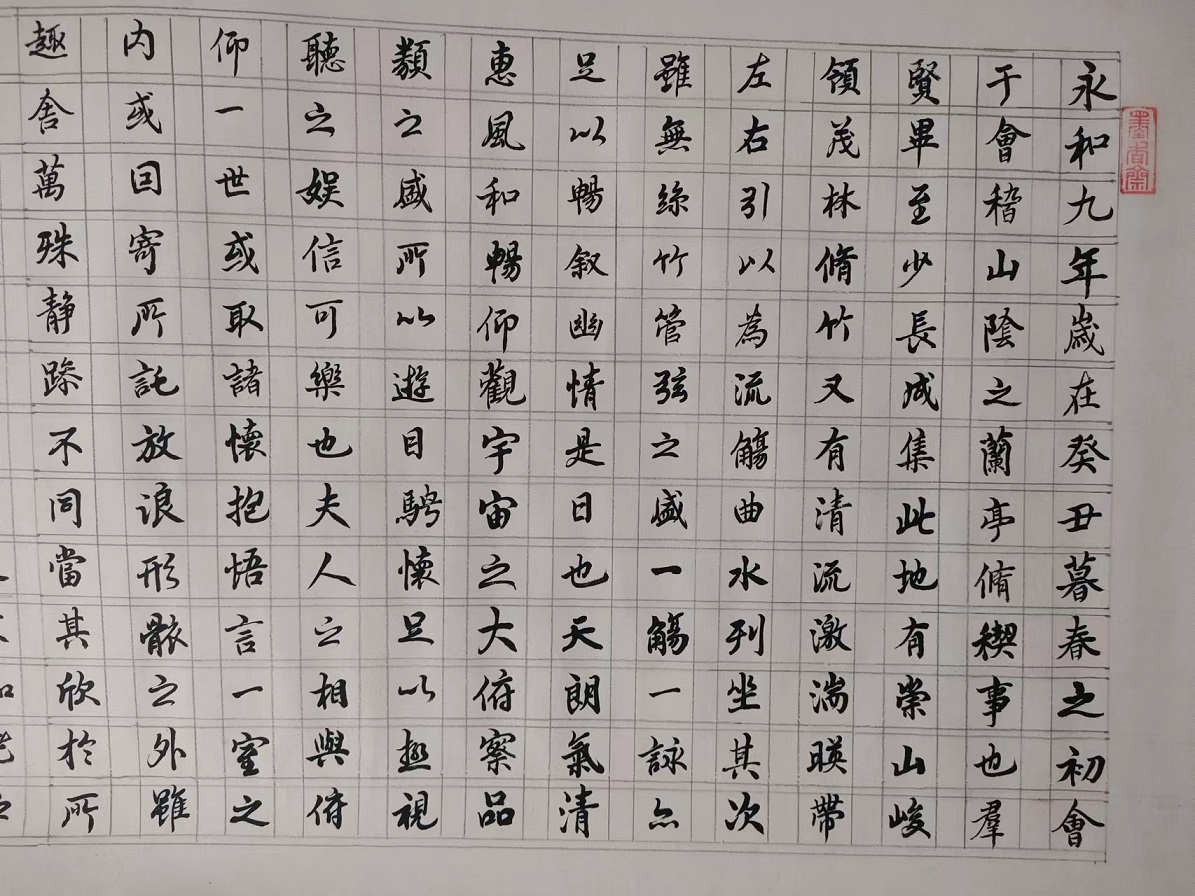 永和九年歲在癸丑暮春之初會
于會稽山陰之蘭亭脩稧事也羣
賢畢至少長咸集此地有崇山峻
領茂林脩竹又有清流激湍暎帶
左右引以為流觴曲水列坐其次
雖無絲竹管弦之盛一觴一詠亦
足以暢叙幽情是日也天朗氣清
惠風和暢仰觀宇宙之大俯察品
類之盛所以遊目騁懷足以極視
聽之娛信可樂也夫人之相與俯
仰一世或取諸懷抱悟言一室之
内或因寄所託放浪形骸之外雖
趣舍萬殊静躁不同當其欣於所